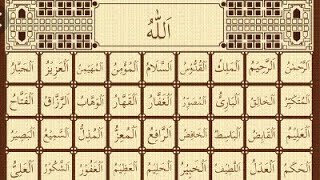 اَللّٰهُ
اَلْجَبَّارُ اَلْعَزِيْزُ اَلْمُهَيْمِنُ اَلْمُؤْمِنُ اَلسَّلَامُ اَلْقُدُّوْسُ اَلْمَلِكُ اَلرَّحِيْمُ اَلرَّحْمٰنُ
اَلْفَتَّاحُ اَلرَّزَّاقُ اَلْوَهَّابُ اَلْقَهَّارُ اَلْغَفَّارُ اَلْمُصَوِّرُ اَلْبَارِئُ اَلْخَالِقُ اَلْمُتَكَبِّرُ
اَلْبَصِيْرُ اَلسَّمِيْعُ اَلْمُذِلُّ اَلْمُعِزُّ اَلرَّافِعُ اَلْخَافِضُ اَلْبَاسِطُ اَلْقَابِضُ اَلْعَلِيْمُ
اَلْعَلِيُّ اَلشَّكُوْرُ اَلْغَفُوْرُ اَلْعَظِيْمُ اَلْحَلِيْمُ اَلْخَبِيْرُ اَللَّطِيْفُ اَلْعَدْلُ اَلْحَكَمُ